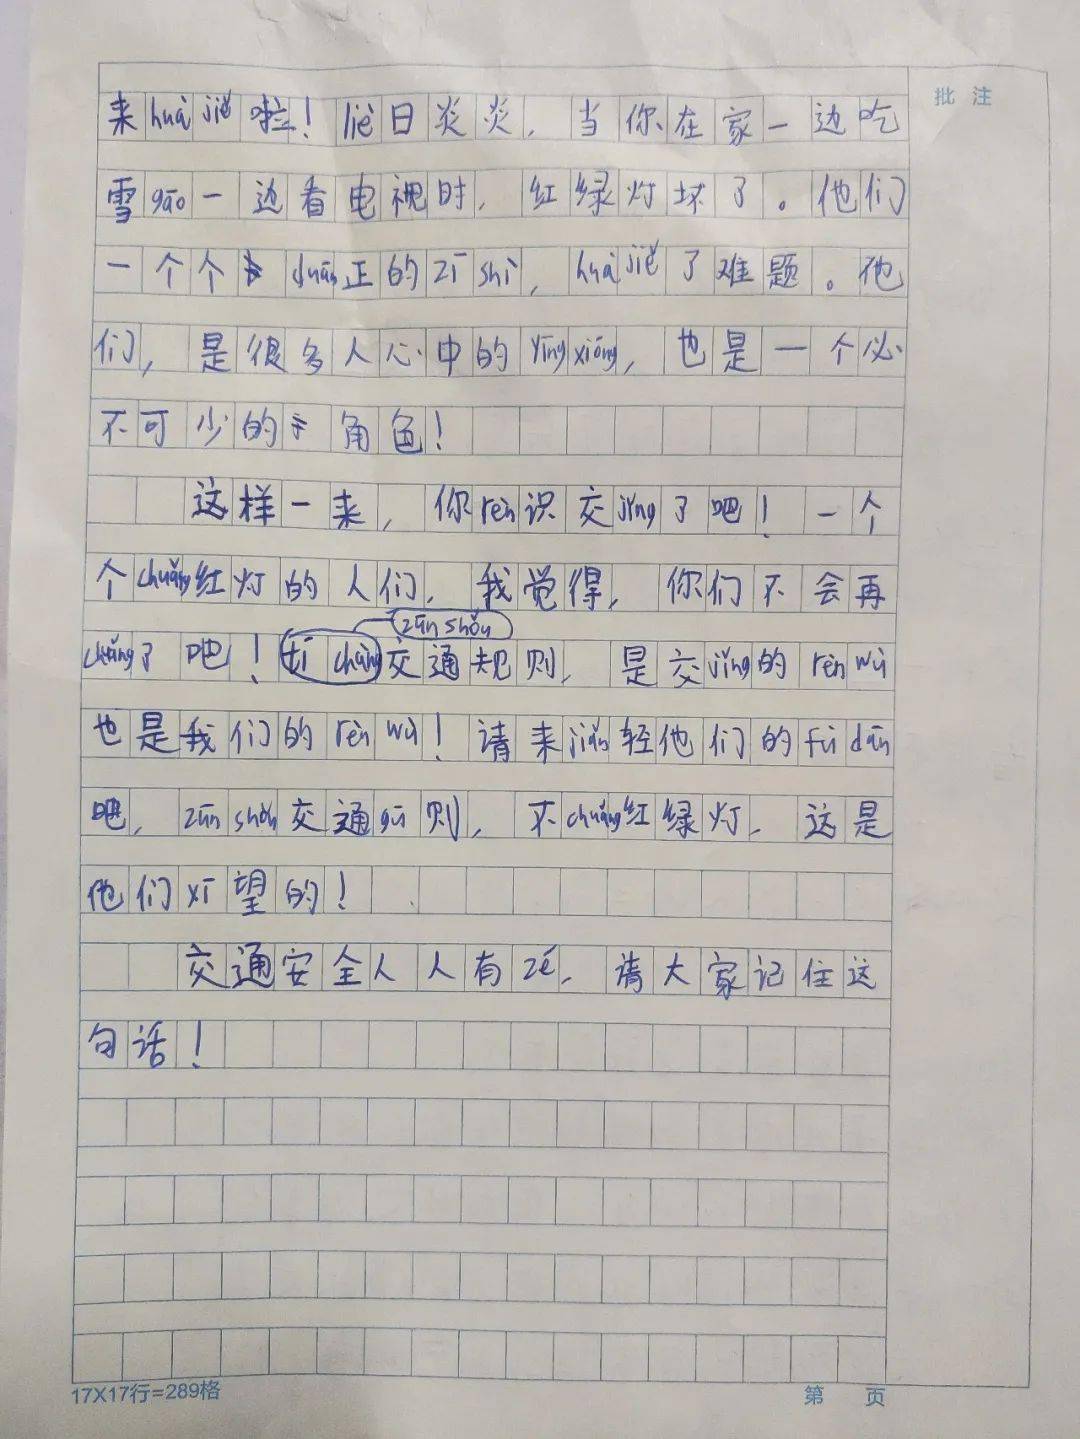 批 注
来huà jiě啦！liè日炎炎，当你在家一边吃
雪gāo一边看电视时，红绿灯坏了。他们
一个个duān正的zī shì，huà jiě了难题。他
们，是很多人心中的yīng xióng，也是一个必
不可少的角色！
这样一来，你rèn识交jǐng了吧！一个
个chuǎng红灯的人们，我觉得，你们不会再
zūn shǒu
chuǎng了吧！交通规则，是交jǐng的rèn wù
也是我们的rèn wù！请来jiǎn轻他们的fù dān
吧，zūn shǒu交通guī则，不chuǎng红绿灯，这是
他们xī望的！
交通安全人人有zé，请大家记住这
句话！
17X17行=289格
第 页